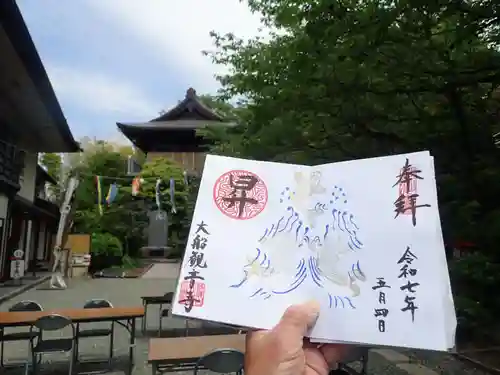 奉拝
令和七年
五月四日
大船観音寺